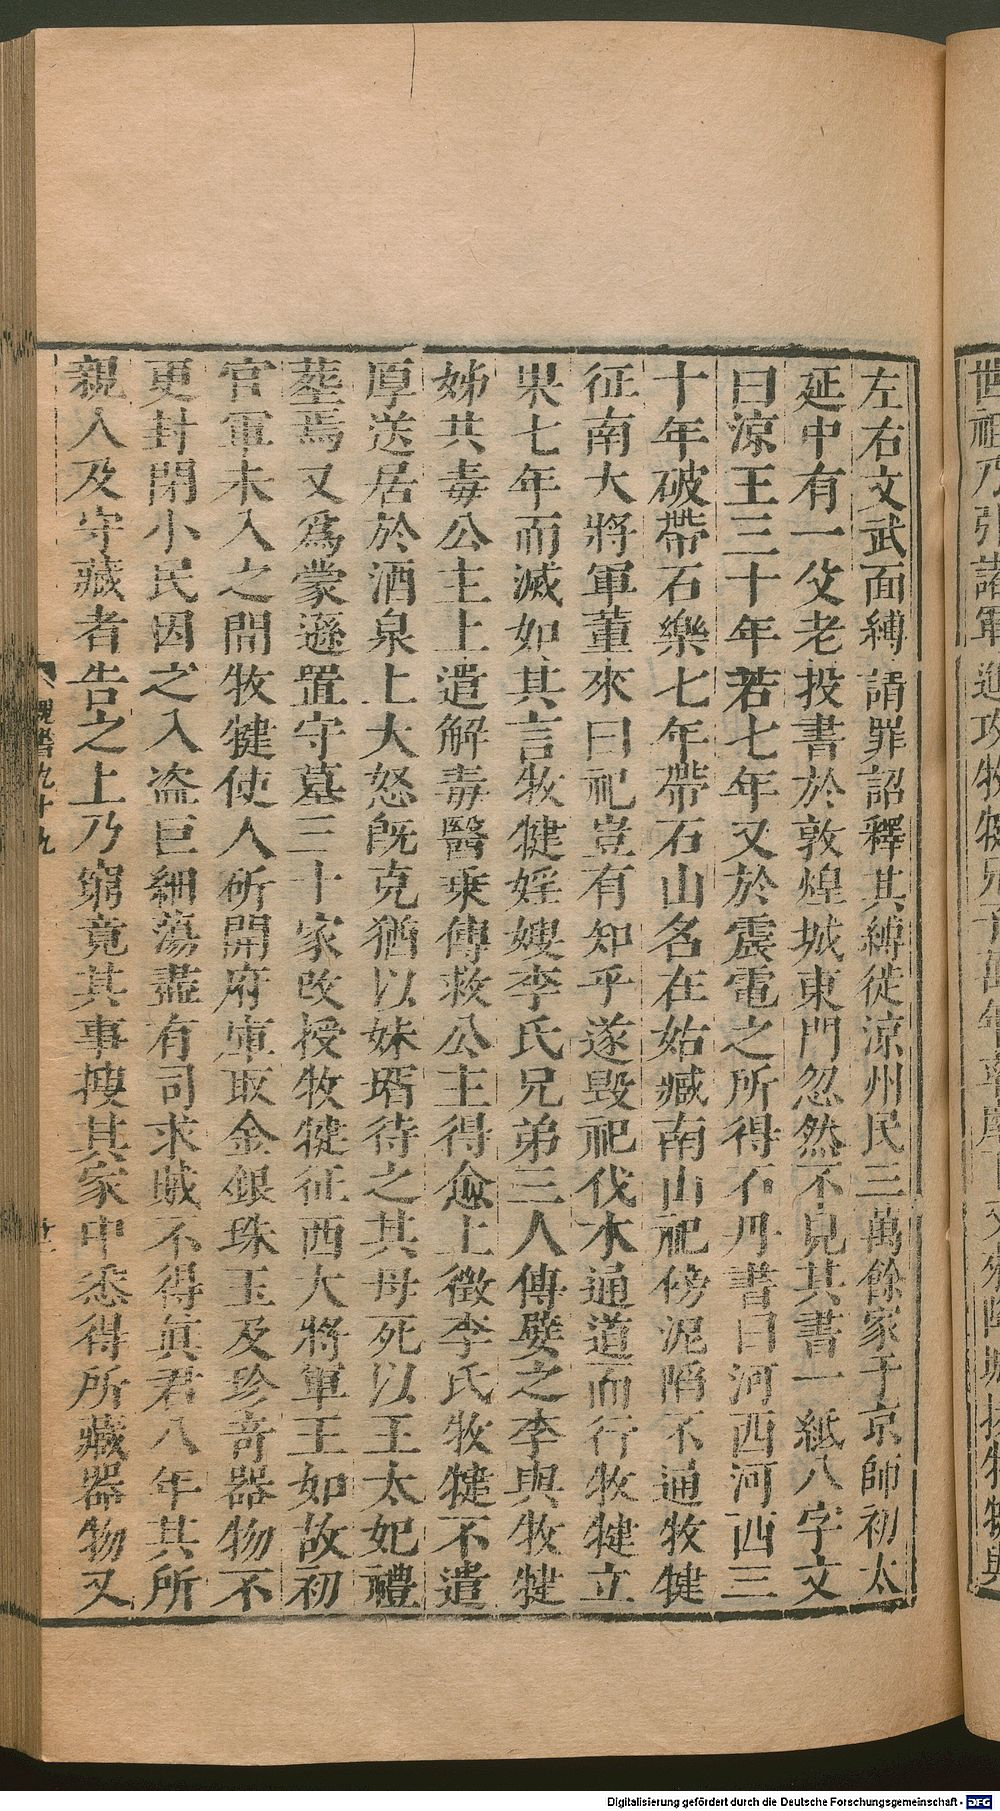 左右文武面縛請罪詔釋其縛徙涼州民三萬餘家于京師初太
延中有一父老投書於敦煌城東門忽然不見其書一紙八字文
曰涼王三十年若七年又於震電之所得石丹書曰河西河西三
十年破帶石樂七年帶石山名在姑臧南山祀傍泥陷不通牧犍
征南大將軍董來曰祀豈有知乎遂毀祀伐木通道而行牧犍立
果七年而滅如其言牧犍婬嫂李氏兄弟三人傳嬖之李與牧犍
姊共毒公主上遣解毒醫乘傳救公主得愈上徵李氏牧犍不遣
厚送居於酒泉上大怒既克猶以妹壻待之其母死以王太妃禮
葬焉又爲蒙遜置守墓三十家改授牧犍征西大將軍王如故初
官軍未入之間牧犍使人斫開府庫取金銀珠玉及珍奇器物不
更封閉小民因之入盗巨細蕩盡有司求賊不得眞君八年其所
親人及守藏者告之上乃窮竟其事搜其家中悉得所藏器物又
魏書九十九
世祖乃引諸軍進攻牧犍兄
城拔牧犍與
Digitalisierung gefördert durch die Deutsche Forschungsgemeinschaft - DFG